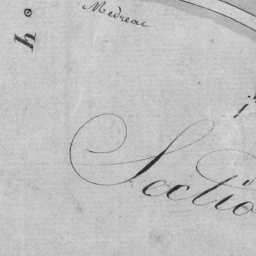 Medreac
h.
Sectio